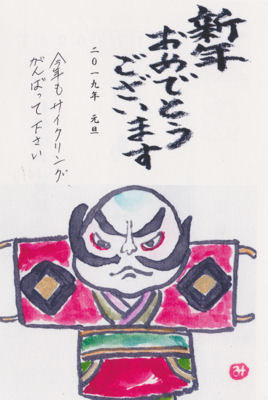 新年
おめでとう
ございます
二〇一九年 元旦
今年もサイクリング
がんばって下さい